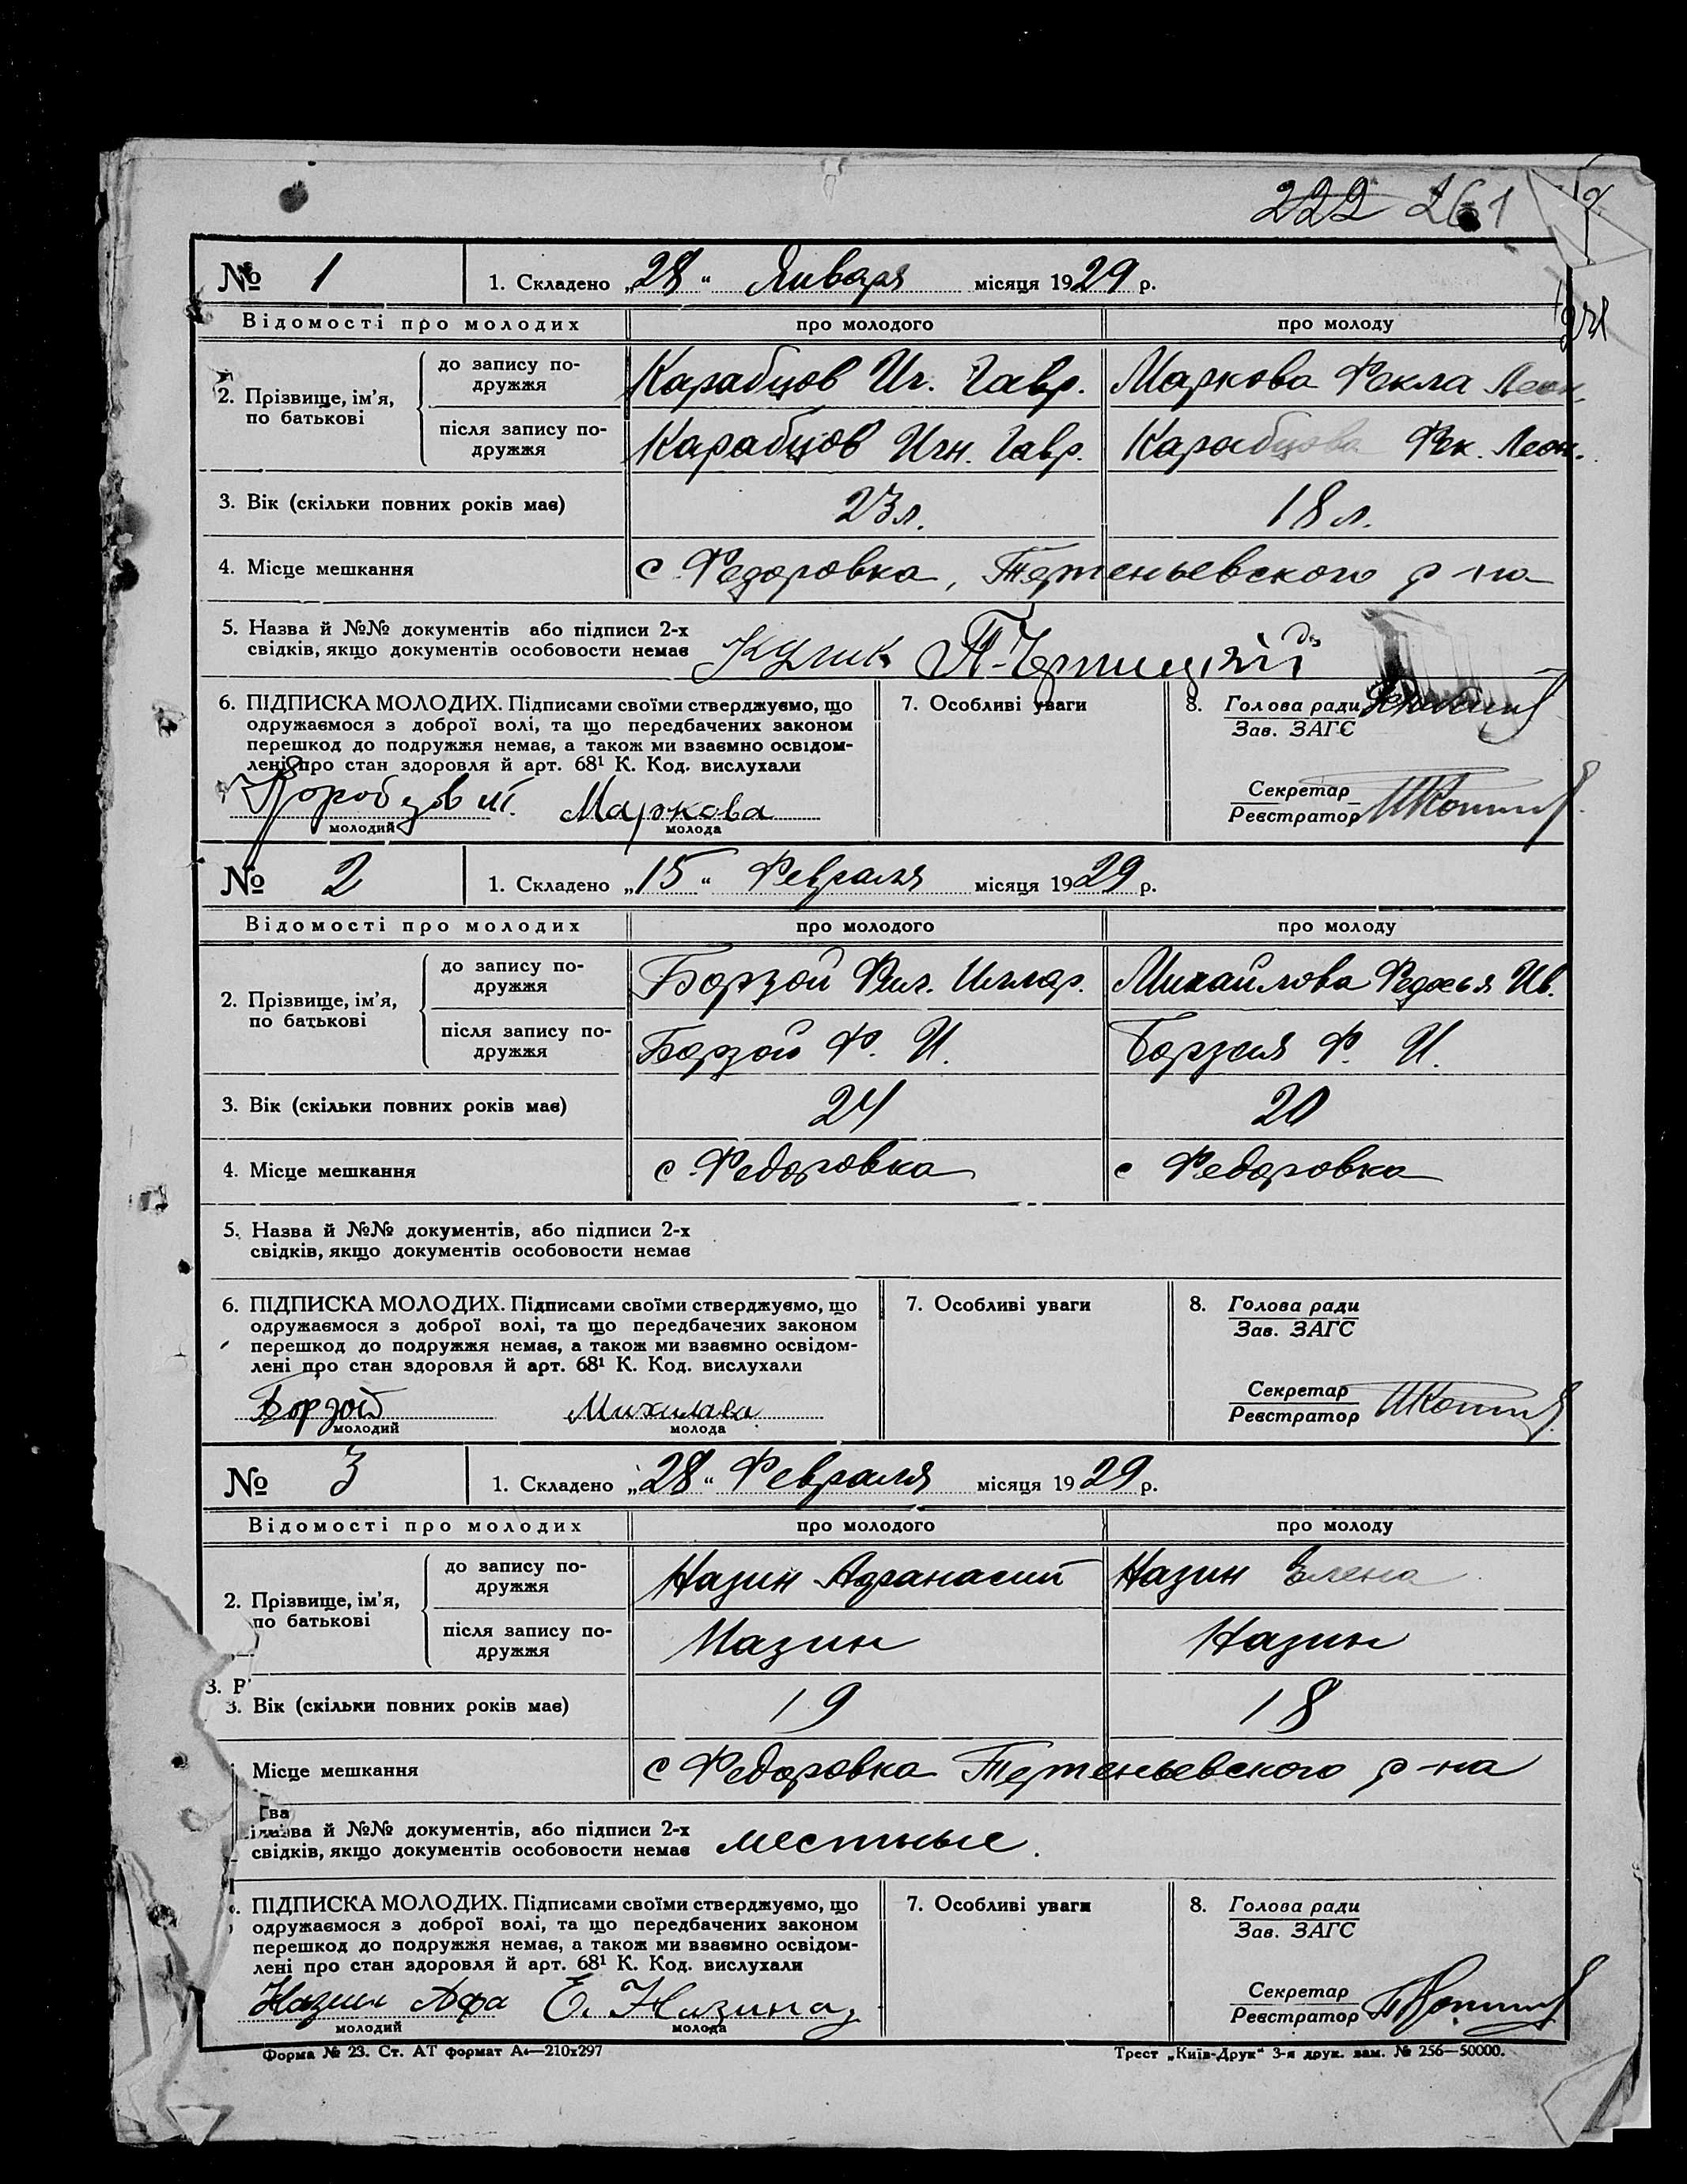 222 261
№ 1 1. Складено „28“ Января місяця 1929 р.
Відомості про молодих про молодого про молоду
2. Прізвище, ім’я, по батькові
до запису подружжя Карабцов Иг. Гавр. Маркова Фекла Леон.
після запису подружжя Карабцов Игн. Гавр. Карабцова Фек. Леон.
3. Вік (скільки повних років має) 23 л. 18 л.
4. Місце мешкання с. Федоровка, Терпеньевского р-на
5. Назва й №№ документів або підписи 2-х
свідків, якщо документів особовости немає Кулик
6. ПІДПИСКА МОЛОДИХ. Підписами своїми стверджуємо, що
одружаємося з доброї волі, та що передбачених законом
перешкод до подружжя немає, а також ми взаємно освідом-
лені про стан здоровля й арт. 68¹ К. Код. вислухали
7. Особливі уваги
8. Голова ради
Зав. ЗАГС
Секретар
Реєстратор
Маркова
молодий молода
№ 2 1. Складено „15“ Февраля місяця 1929 р.
Відомості про молодих про молодого про молоду
2. Прізвище, ім’я, по батькові
до запису подружжя Борзой Фил. Иллар. Михайлова Федосья Ив.
після запису подружжя Борзой Ф. И. Борзая Ф. И.
3. Вік (скільки повних років має) 24 20
4. Місце мешкання с Федоровка с Федоровка
5. Назва й №№ документів, або підписи 2-х
свідків, якщо документів особовости немає
6. ПІДПИСКА МОЛОДИХ. Підписами своїми стверджуємо, що
одружаємося з доброї волі, та що передбачених законом
перешкод до подружжя немає, а також ми взаємно освідом-
лені про стан здоровля й арт. 68¹ К. Код. вислухали
7. Особливі уваги
8. Голова ради
Зав. ЗАГС
Секретар
Реєстратор
Борзой
молодий молода
№ 3 1. Складено „28“ Февраля місяця 1929 р.
Відомості про молодих про молодого про молоду
2. Прізвище, ім’я, по батькові
до запису подружжя Назин Афанасий Назин Елена
після запису подружжя Назин Назин
3. Вік (скільки повних років має) 19 18
Місце мешкання с Федоровка Терпеньевского р-на
й №№ документів, або підписи 2-х
свідків, якщо документів особовости немає местные.
ПІДПИСКА МОЛОДИХ. Підписами своїми стверджуємо, що
одружаємося з доброї волі, та що передбачених законом
перешкод до подружжя немає, а також ми взаємно освідом-
лені про стан здоровля й арт. 68¹ К. Код. вислухали
7. Особливі уваги
8. Голова ради
Зав. ЗАГС
Секретар
Реєстратор
Назин Афа Е. Назина
молодий молода
Форма № 23. Ст. АТ формат А₄—210х297 Трест „Київ-Друк“ 3-я друк. зам. № 256—50000.